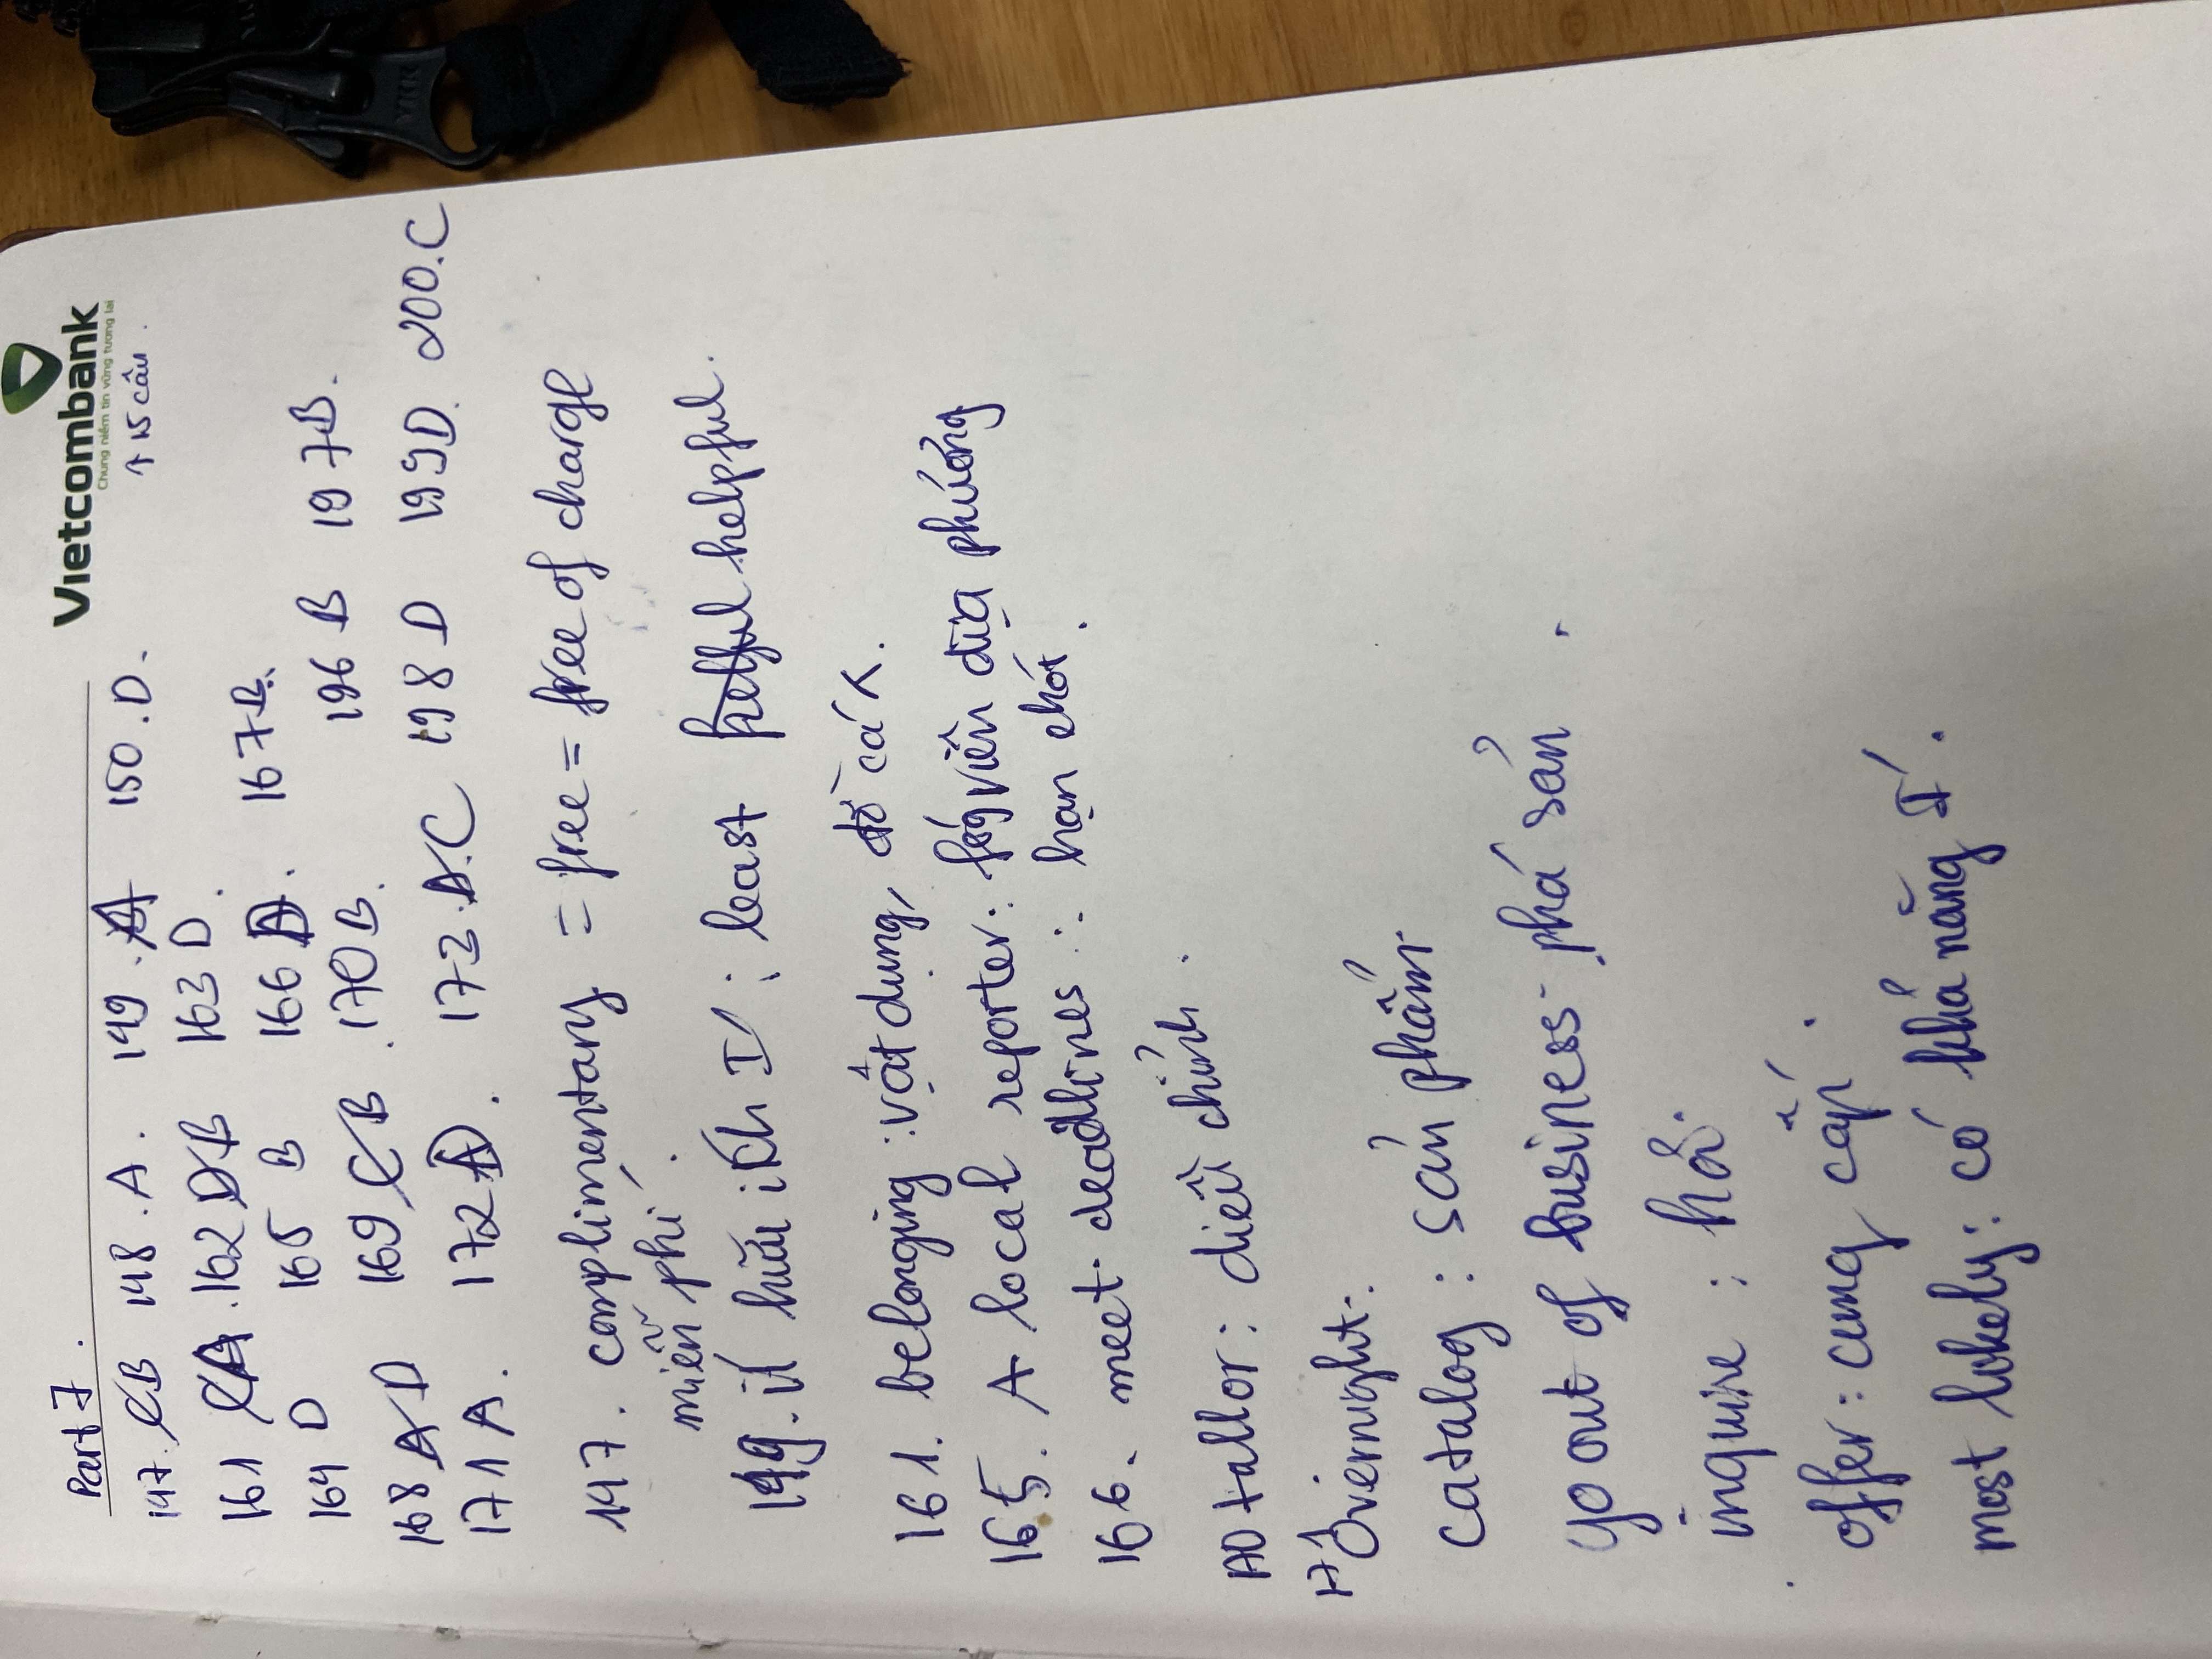 Part 7.
Vietcombank
Chung niềm tin vững tương lai
147. C B 148. A. 149. A 150. D.
↑ 15 câu.
161 C A. 162 D B 163 D.
164 D 165 B 166 D. 167 B.
168 A D 169 C B. 170 B. 196 B 197 B.
171 A. 172 D. 173. A. C 198 D 199 D. 200. C
147. complimentary = free = free of charge
miễn phí.
149. ít hữu ích I'; least helpful.
161. belonging: vật dụng, đồ cá
165. A local reporter: fóg viên địa phương
166. meet deadlines: hạn chót.
tallor: điều chỉnh.
171 Overnight:
catalog: sản phẩm
go out of business: phá sản.
inquire: hỏi
offer: cung cấp.
most lokely: có khả năng I'.